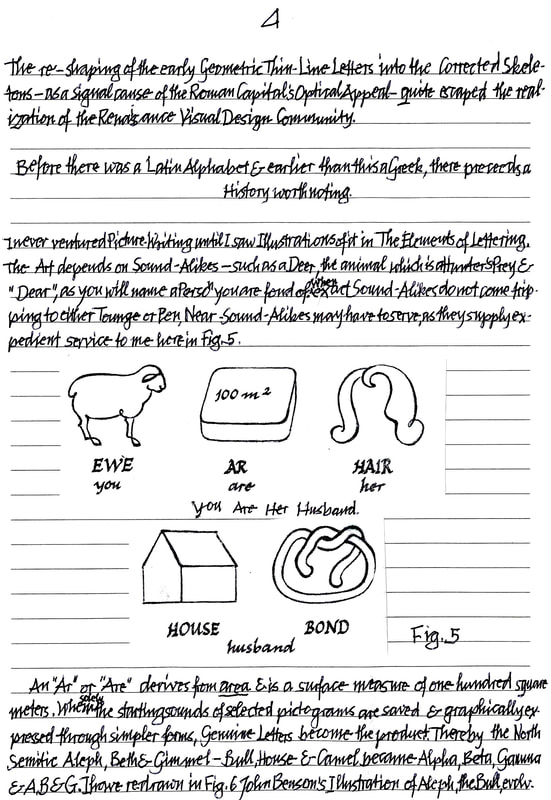 4
The re-shaping of the early Geometric Thin-Line Letters into the Corrected Skele-
tons-as a signal cause of the Roman Capital's Optical Appeal-quite escaped the real-
ization of the Renaisance Visual Design Community.
Before there was a Latin Alphabet & earlier than this a Greek, there preceeds a
History worth noting.
I never ventured Picture Writing until I saw Illustrations of it in The Elements of Lettering.
The Art depends on Sound-Alikes-such as a Deer, the animal which is a Hunter's Prey &
"Dear", as you will name a Perso you are fond of, when exact Sound-Alikes do not come trip-
ping to either Tounge or Pen, Near-Sound-Alikes may have to serve, as they supply ex-
pedient service to me here in Fig. 5.
100 m²
EWE AR HAIR
you are her
You Are Her Husband.
HOUSE BOND
husband
Fig. 5
An "Ar" or "Are" derives from area & is a surface measure of one hundred square
meters. When solely the starting sounds of selected pictograms are saved & graphically ex-
pressed through simpler forms, Genuine Letters become the product. Thereby the North
Semitic Aleph, Beth & Gimmel-Bull, House & Camel, became Alpha, Beta, Gamma
& A, B & G. I have redrawn in Fig. 6 John Benson's Illustration of Aleph, the Bull, evolv-